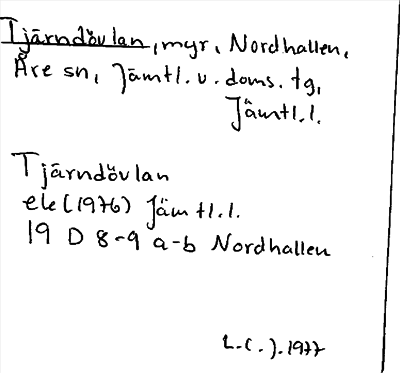 Tjärndövlan, myr, Nordhallen,
Åre sn, Jämtl. v. doms. tg,
Jämtl.l.
Tjärndövlan
ek (1976) Jämtl.l.
19 D 8-9 a-b Nordhallen
L.( . ).1977